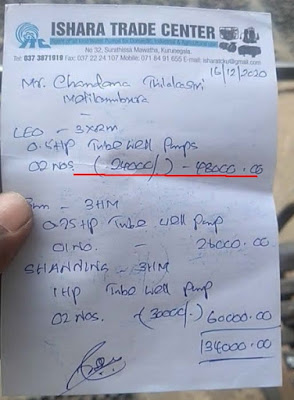 ISHARA TRADE CENTER
No 32, Surathissa Mawatha, Kurunegala.
Tel: 037 3871918 Fax: 037 22 24 107 Mobile: 071 84 91 655 E-mail:
16/12/2020
Mr. Chandana Thilakasri
LEO - 3XRM
0.5HP Tube Well Pumps
02 Nos (24000/-) - 48000.00
- 3HM
0.75HP Tube Well Pump
01 No. - 26000.00
SHANNING - 3HM
1 HP Tube Well Pump
02 Nos. - (30000/-) 60000.00
134000.00